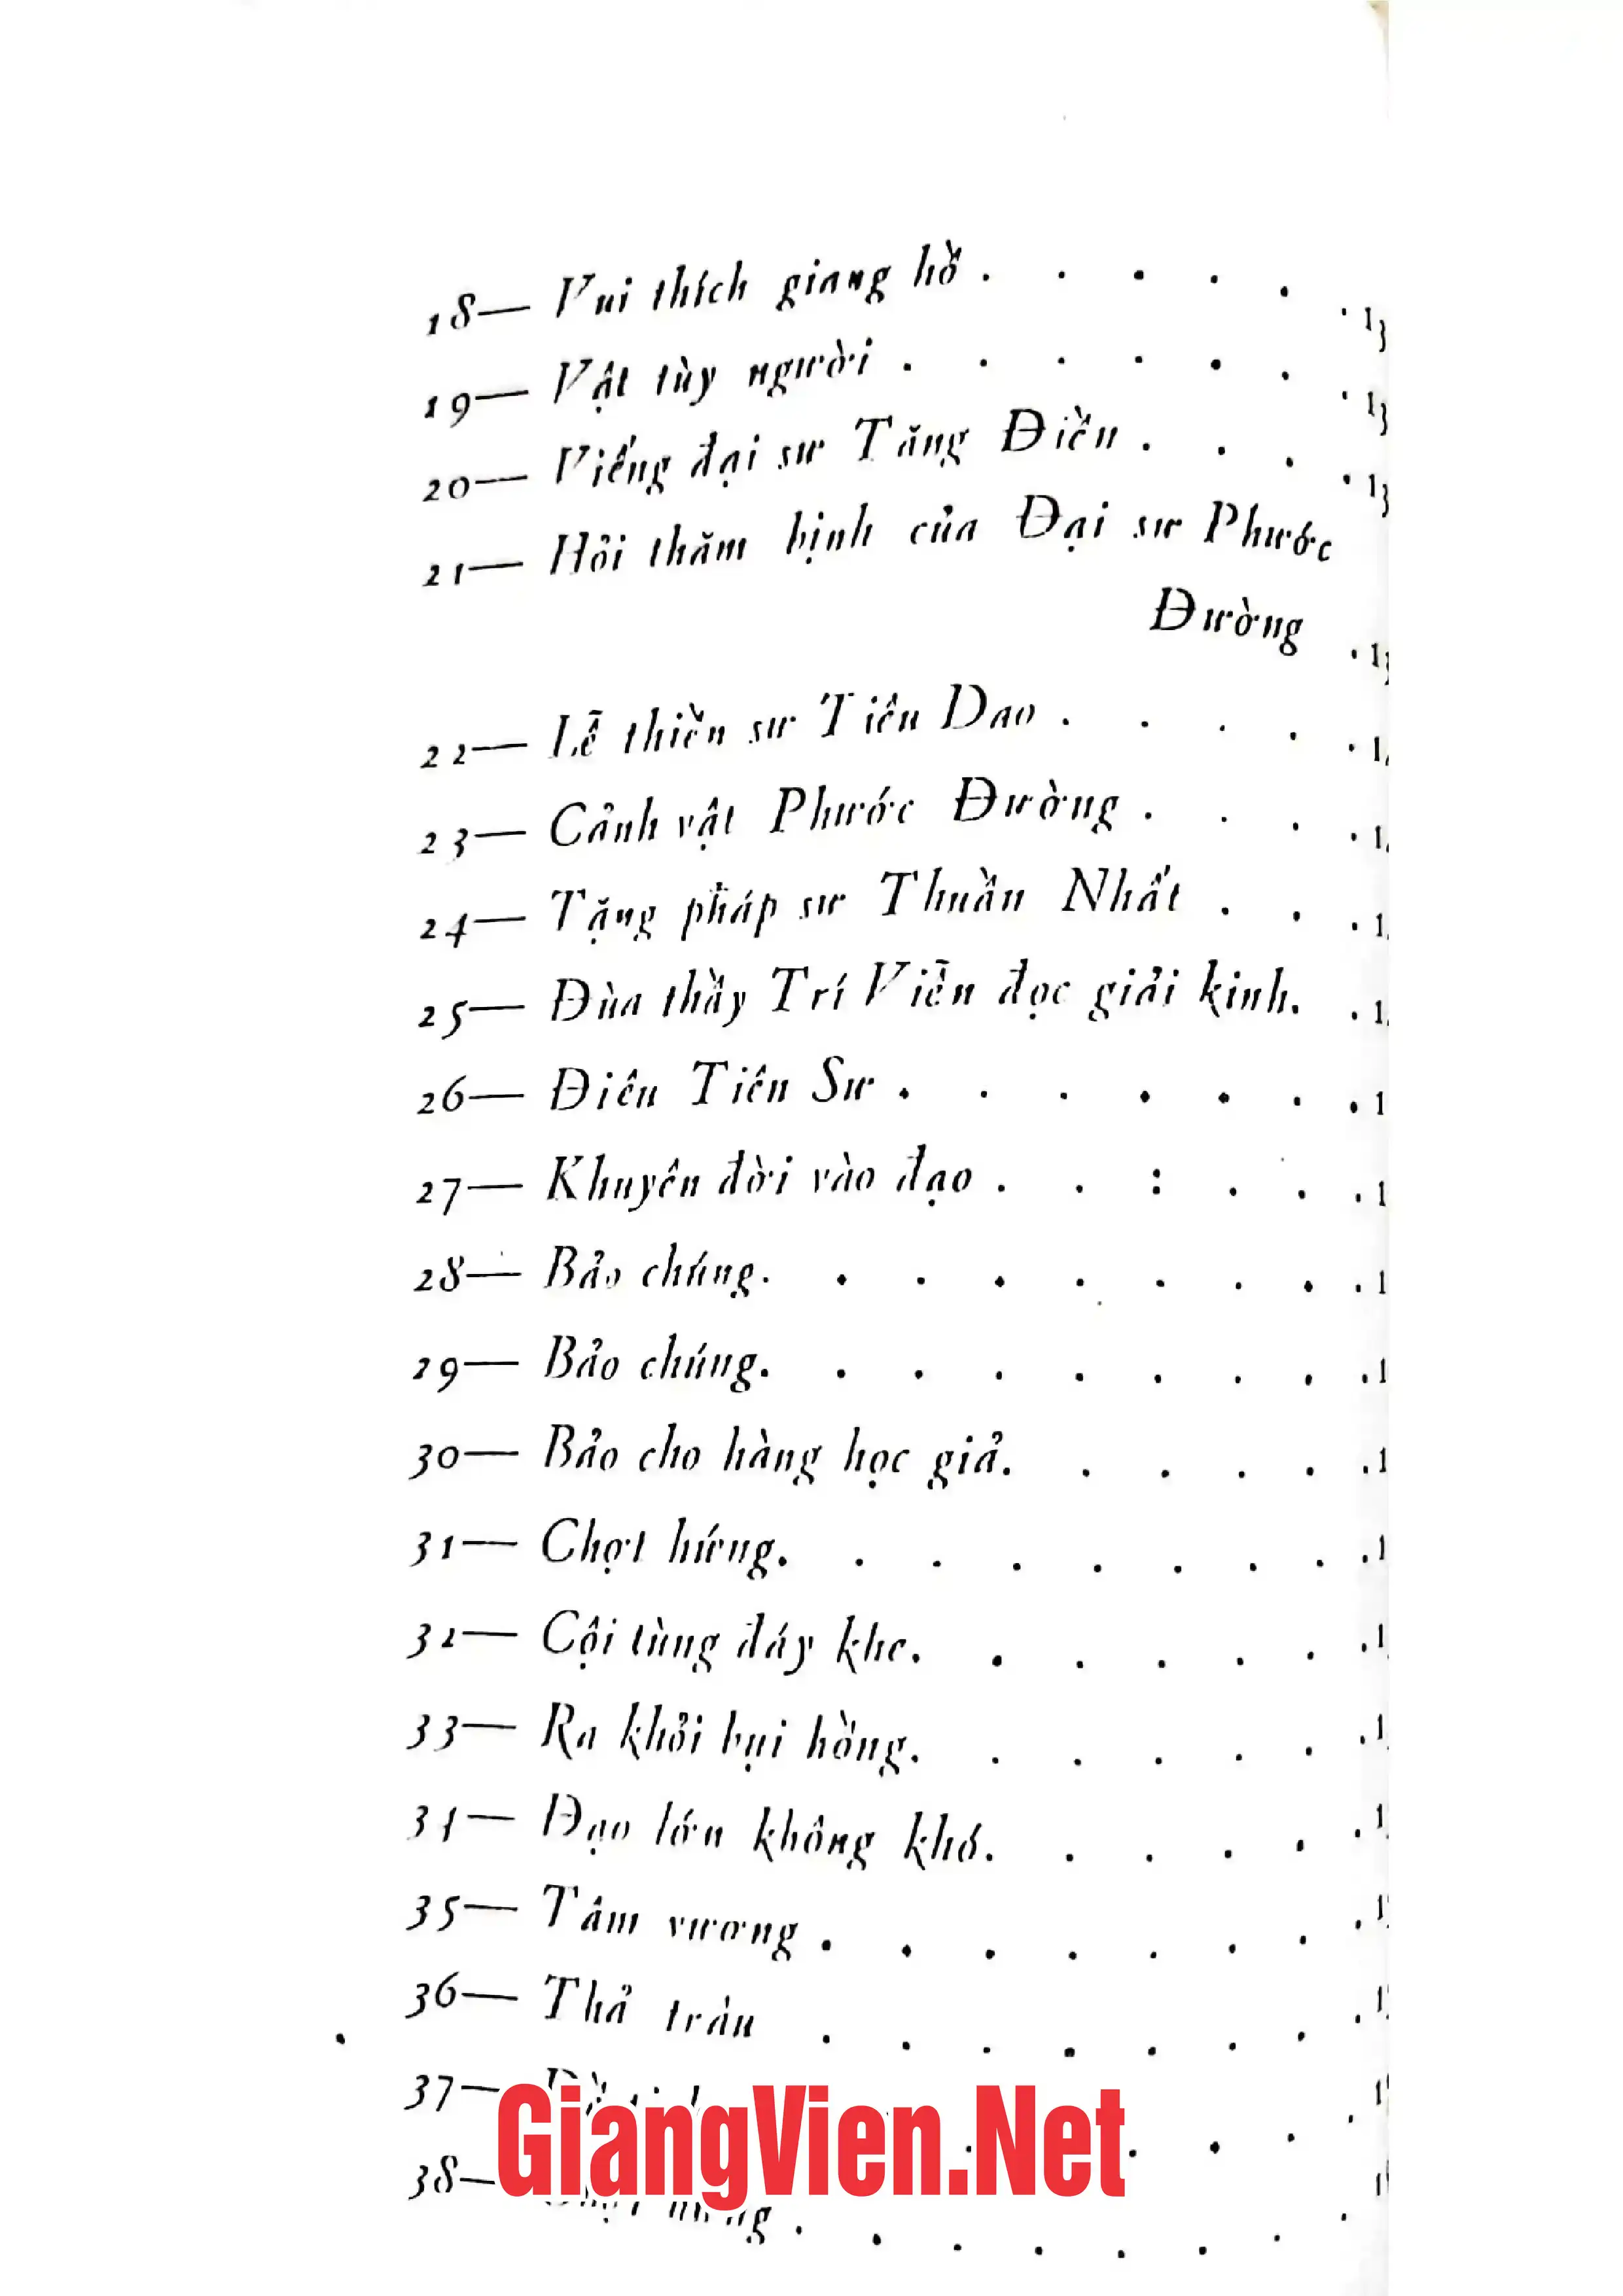 18— Vui thích giang hồ . . . . . . 13
19— Vật tùy người . . . . . . . 13
20— Viếng đại sư Tăng Điền . . . . 13
21— Hỏi thăm bịnh của Đại sư Phước
Đường . 13
22— Lễ thiền sư Tiêu Dao . . . . . 1
23— Cảnh vật Phước Đường . . . . 1
24— Tặng pháp sư Thuần Nhất . . . 1
25— Đùa thầy Trí Viễn đọc giải kinh. . 1
26— Điếu Tiên Sư . . . . . . . 1
27— Khuyên đời vào đạo . . : . . . 1
28— Bảo chúng. . . . . . . . . 1
29— Bảo chúng. . . . . . . . . 1
30— Bảo cho hàng học giả. . . . . . 1
31— Chợt hứng. . . . . . . . . 1
32— Cội tùng đáy khe. . . . . . . 1
33— Ra khỏi bụi hồng. . . . . . . 1
34— Đạo lớn không khó. . . . . . 1
35— Tâm vương . . . . . . . . 1
36— Thả trâu . . . . . . . . 1
37—
GiangVien.Net
38—